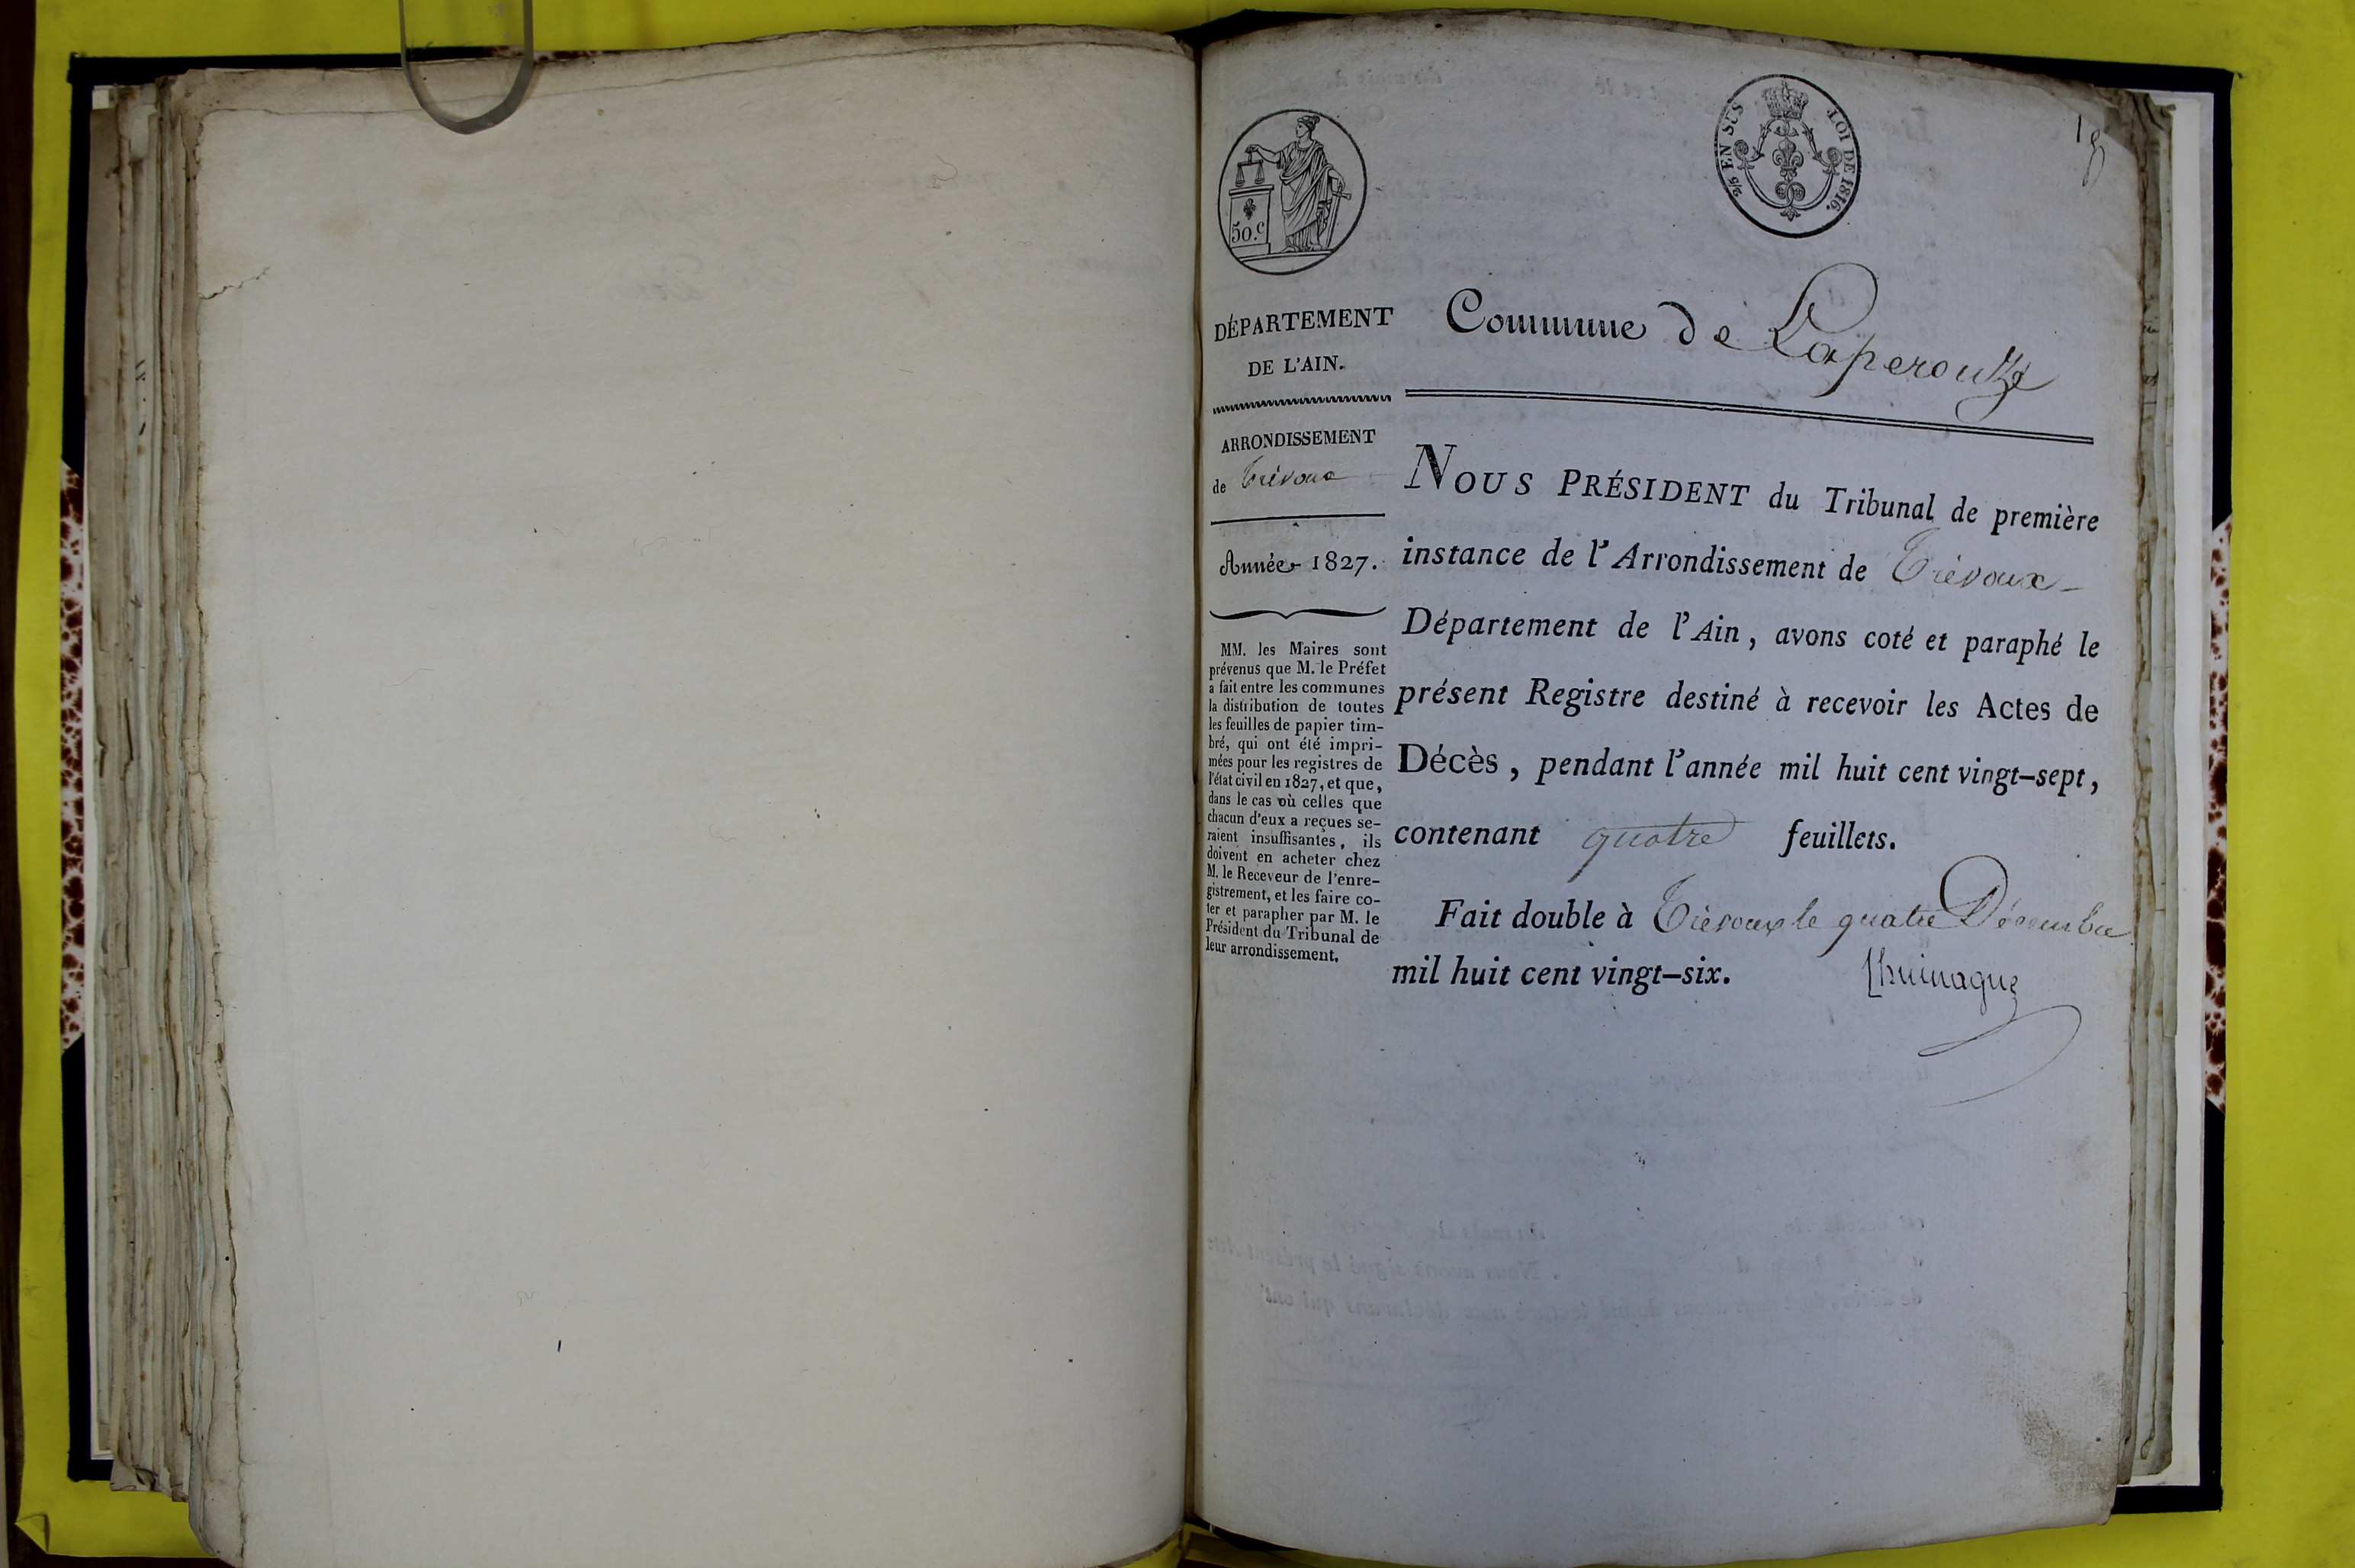 2/5 EN SUS
LOI DE 1816.
50.c
DÉPARTEMENT
DE L'AIN.
ARRONDISSEMENT
de Trévoux
Année 1827.
MM. les Maires sont
prévenus que M. le Préfet
a fait entre les communes
la distribution de toutes
les feuilles de papier tim-
bré, qui ont été impri-
mées pour les registres de
l'état civil en 1827, et que,
dans le cas où celles que
chacun d'eux a reçues se-
raient insuffisantes, ils
doivent en acheter chez
M. le Receveur de l'enre-
gistrement, et les faire co-
ter et parapher par M. le
Président du Tribunal de
leur arrondissement.
Commune de Laperouze
NOUS PRÉSIDENT du Tribunal de première
instance de l'Arrondissement de Trévoux
Département de l'Ain, avons coté et paraphé le
présent Registre destiné à recevoir les Actes de
Décès, pendant l'année mil huit cent vingt-sept,
contenant quatre feuillets.
Fait double à Trévoux le quatre Décembre
mil huit cent vingt-six.